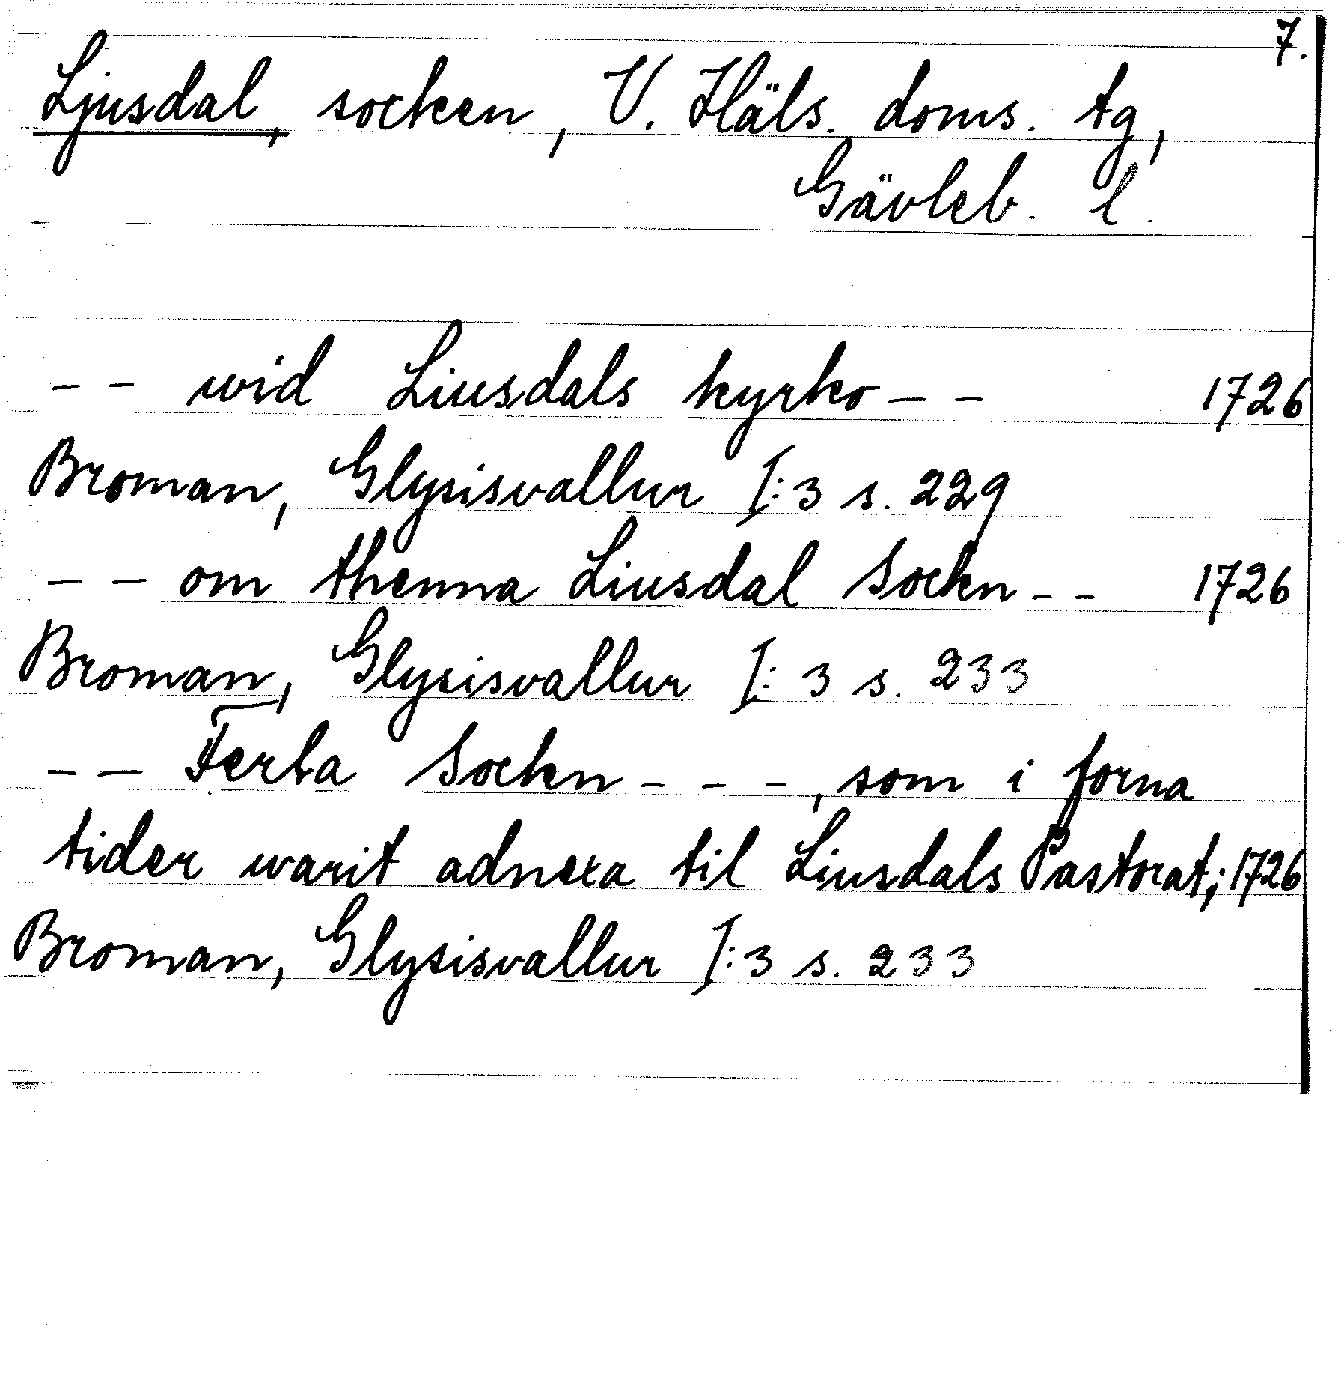 7.
Ljusdal, socken, V. Häls. doms. tg,
Gävleb. l.
-- wid Liusdals kyrko --
1726
Broman, Glysisvallur I:3 s. 229
-- om thenna Liusdal Sockn --
1726
Broman, Glysisvallur I:3 s. 233
-- Ferla Sockn ---, som i forna
tider warit adnexa til Liusdals Pastorat; 1726
Broman, Glysisvallur I:3 s. 233